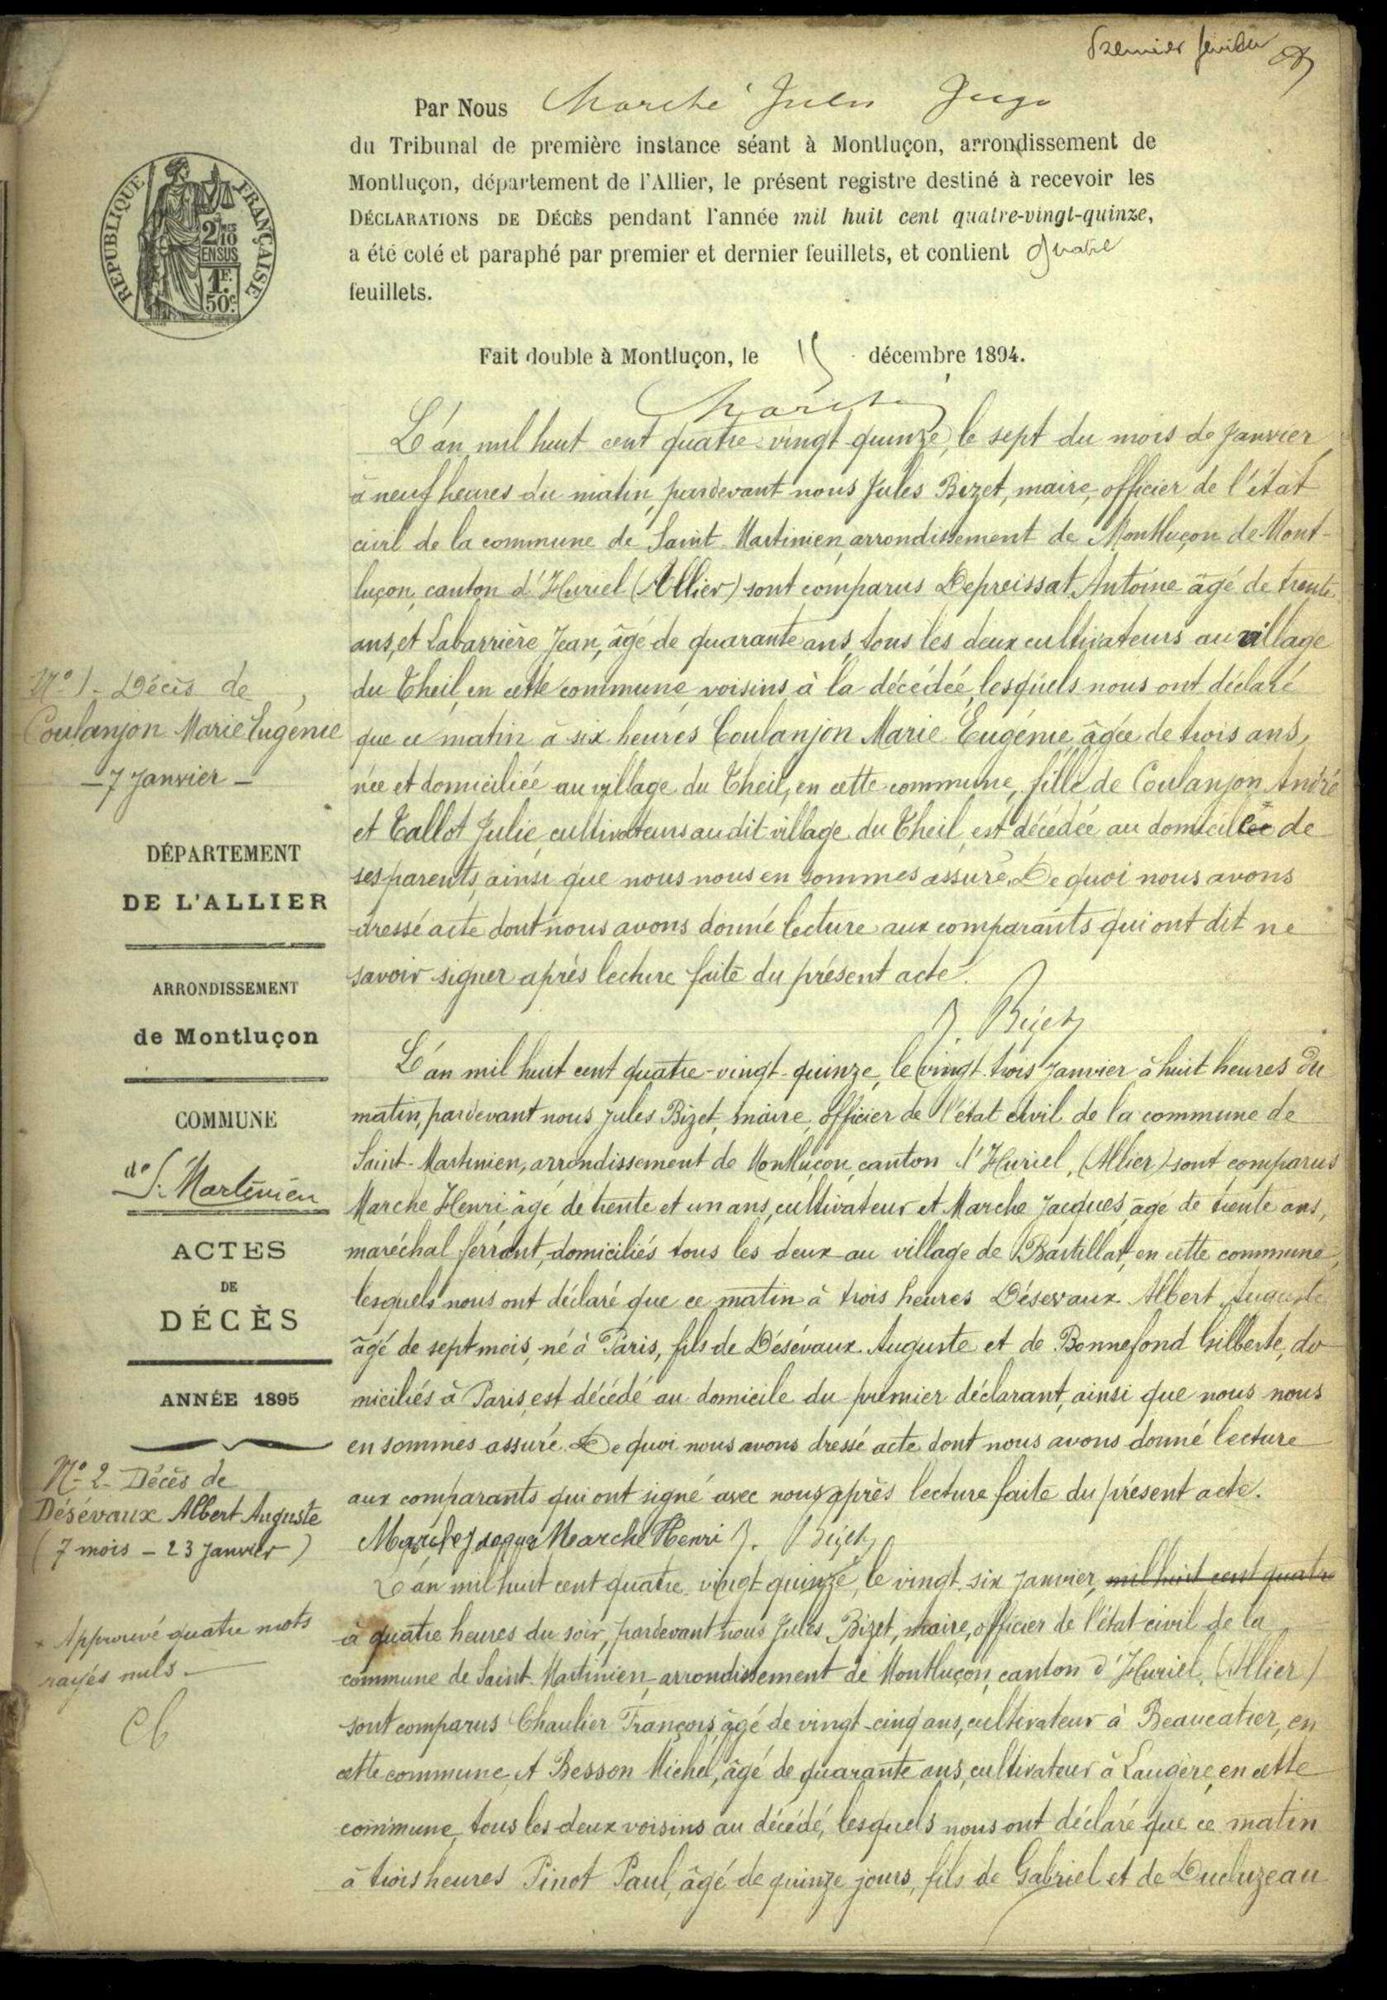 Premier feuillet
Par Nous Marché Jules Juge
du Tribunal de première instance séant à Montluçon, arrondissement de
Montluçon, département de l'Allier, le présent registre destiné à recevoir les
DÉCLARATIONS DE DÉCÈS pendant l'année mil huit cent quatre-vingt-quinze,
a été coté et paraphé par premier et dernier feuillets, et contient quatre
feuillets.
Fait double à Montluçon, le 15 décembre 1894.
Marché
RÉPUBLIQUE FRANÇAISE
2/10
EN SUS
1F.
50c.
L'an mil huit cent quatre-vingt quinze, le sept du mois de Janvier
à neuf heures du matin, pardevant nous Jules Bizet, maire, officier de l'état
civil de la commune de Saint-Martinien, arrondissement de Montluçon de Mont-
luçon, canton d'Huriel (Allier) sont comparus Depreissat Antoine âgé de trente
ans, et Labarrière Jean, âgé de quarante ans, tous les deux cultivateurs au village
du Theil, en cette commune, voisins à la décédée, lesquels nous ont déclaré
que ce matin à six heures Coulanjon Marie Eugénie âgée de trois ans,
née et domiciliée au village du Theil, en cette commune, fille de Coulanjon André
et Tallot Julie, cultivateurs audit village du Theil, est décédée au domicile de
ses parents, ainsi que nous nous en sommes assuré. De quoi nous avons
dressé acte dont nous avons donné lecture aux comparants qui ont dit ne
savoir signer après lecture faite du présent acte.
J. Bizet
N° 1 - Décès de
Coulanjon Marie Eugénie
- 7 Janvier -
DÉPARTEMENT
DE L'ALLIER
ARRONDISSEMENT
de Montluçon
COMMUNE
de St Martinien
ACTES
DE
DÉCÈS
ANNÉE 1895
L'an mil huit cent quatre-vingt-quinze, le vingt-trois Janvier à huit heures du
matin, pardevant nous Jules Bizet, maire, officier de l'état civil de la commune de
Saint-Martinien, arrondissement de Montluçon, canton d'Huriel, (Allier) sont comparus
Marche Henri âgé de trente et un ans, cultivateur et Marche Jacques, âgé de trente ans,
maréchal ferrant, domiciliés tous les deux au village de Bartillat, en cette commune,
lesquels nous ont déclaré que ce matin à trois heures Désevaux Albert Auguste
âgé de sept mois, né à Paris, fils de Désévaux Auguste et de Bonnefond Gilberte, do-
miciliés à Paris, est décédé au domicile du premier déclarant, ainsi que nous nous
en sommes assuré. De quoi nous avons dressé acte dont nous avons donné lecture
aux comparants qui ont signé avec nous après lecture faite du présent acte.
Marche Jacques Marche Henri J. Bizet
N° 2 - Décès de
Désévaux Albert Auguste
(7 mois - 23 Janvier)
L'an mil huit cent quatre vingt-quinze, le vingt-six Janvier, mil huit cent quatre
à quatre heures du soir, pardevant nous Jules Bizet, maire, officier de l'état civil de la
commune de Saint-Martinien, arrondissement de Montluçon, canton d'Huriel, (Allier)
sont comparus Chaulier François, âgé de vingt-cinq ans, cultivateur à Beaucatier, en
cette commune et Besson Michel, âgé de quarante ans, cultivateur à Laugère, en cette
commune, tous les deux voisins au décédé, lesquels nous ont déclaré que ce matin
à trois heures Pinot Paul, âgé de quinze jours, fils de Gabriel et de Ducluzeau
x Approuvé quatre mots
rayés nuls.